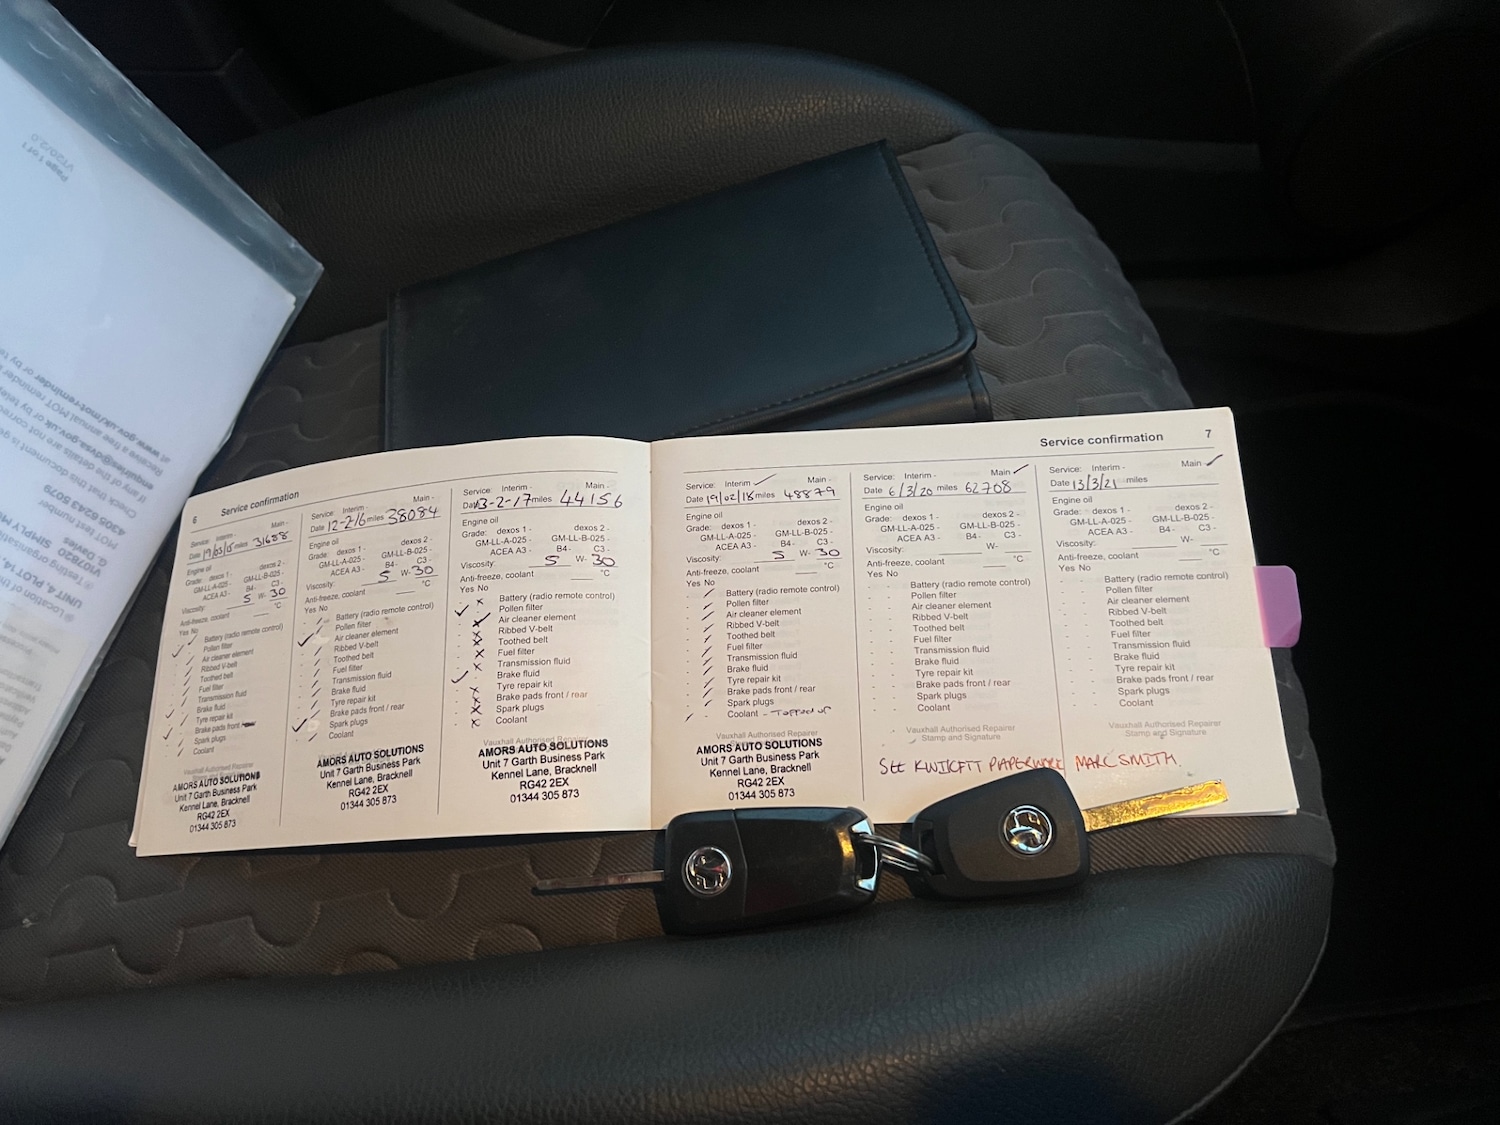 Page 1 of 1
VT20/2.0
www.gov.uk/mot-reminder or by te
Receive a free annual MOT reminder
enquiries@dvsa.gov.uk or by
If any of the details are not correct
Check that this document is
4305 6243 5079
MOT test number
G. Davies
V107820 SIMPLY M
Testing organisation
UNIT 4, PLOT 14
Location of the
6 Service confirmation
Service: Interim - Main -
Date 19/03/15 miles 31688
Engine oil
Grade: dexos 1 - dexos 2 -
GM-LL-A-025 - GM-LL-B-025 -
ACEA A3 - B4- C3 -
Viscosity: 5 W- 30
Anti-freeze, coolant °C
Yes No
Battery (radio remote control)
Pollen filter
Air cleaner element
Ribbed V-belt
Toothed belt
Fuel filter
Transmission fluid
Brake fluid
Tyre repair kit
Brake pads front
Spark plugs
Coolant
Vauxhall Authorised Repairer
AMORS AUTO SOLUTIONS
Unit 7 Garth Business Park
Kennel Lane, Bracknell
RG42 2EX
01344 305 873
Service: Interim - Main -
Date 12-2-16 miles 38084
Engine oil
Grade: dexos 1 - dexos 2 -
GM-LL-A-025 - GM-LL-B-025 -
ACEA A3 - B4- C3 -
Viscosity: 5 W- 30
Anti-freeze, coolant °C
Yes No
Battery (radio remote control)
Pollen filter
Air cleaner element
Ribbed V-belt
Toothed belt
Fuel filter
Transmission fluid
Brake fluid
Tyre repair kit
Brake pads front / rear
Spark plugs
Coolant
AMORS AUTO SOLUTIONS
Unit 7 Garth Business Park
Kennel Lane, Bracknell
RG42 2EX
01344 305 873
Service: Interim - Main -
Date 13-2-17 miles 44156
Engine oil
Grade: dexos 1 - dexos 2 -
GM-LL-A-025 - GM-LL-B-025 -
ACEA A3 - B4- C3 -
Viscosity: 5 W- 30
Anti-freeze, coolant °C
Yes No
Battery (radio remote control)
Pollen filter
Air cleaner element
Ribbed V-belt
Toothed belt
Fuel filter
Transmission fluid
Brake fluid
Tyre repair kit
Brake pads front / rear
Spark plugs
Coolant
Vauxhall Authorised Repairer
AMORS AUTO SOLUTIONS
Unit 7 Garth Business Park
Kennel Lane, Bracknell
RG42 2EX
01344 305 873
Service confirmation 7
Service: Interim - Main -
Date 19/02/18 miles 48879
Engine oil
Grade: dexos 1 - dexos 2 -
GM-LL-A-025 - GM-LL-B-025 -
ACEA A3 - B4- C3 -
Viscosity: 5 W- 30
Anti-freeze, coolant °C
Yes No
Battery (radio remote control)
Pollen filter
Air cleaner element
Ribbed V-belt
Toothed belt
Fuel filter
Transmission fluid
Brake fluid
Tyre repair kit
Brake pads front / rear
Spark plugs
Coolant - TOPPED UP
Vauxhall Authorised Repairer
AMORS AUTO SOLUTIONS
Unit 7 Garth Business Park
Kennel Lane, Bracknell
RG42 2EX
01344 305 873
Service: Interim - Main -
Date 6/3/20 miles 62708
Engine oil
Grade: dexos 1 - dexos 2 -
GM-LL-A-025 - GM-LL-B-025 -
ACEA A3 - B4- C3 -
Viscosity: W-
Anti-freeze, coolant °C
Yes No
Battery (radio remote control)
Pollen filter
Air cleaner element
Ribbed V-belt
Toothed belt
Fuel filter
Transmission fluid
Brake fluid
Tyre repair kit
Brake pads front / rear
Spark plugs
Coolant
Vauxhall Authorised Repairer
Stamp and Signature
Service: Interim - Main -
Date 13/3/21 miles
Engine oil
Grade: dexos 1 - dexos 2 -
GM-LL-A-025 - GM-LL-B-025 -
ACEA A3 - B4- C3 -
Viscosity: W-
Anti-freeze, coolant °C
Yes No
Battery (radio remote control)
Pollen filter
Air cleaner element
Ribbed V-belt
Toothed belt
Fuel filter
Transmission fluid
Brake fluid
Tyre repair kit
Brake pads front / rear
Spark plugs
Coolant
Vauxhall Authorised Repairer
Stamp and Signature
SEE KWIKFIT PAPERWORK MARC SMITH